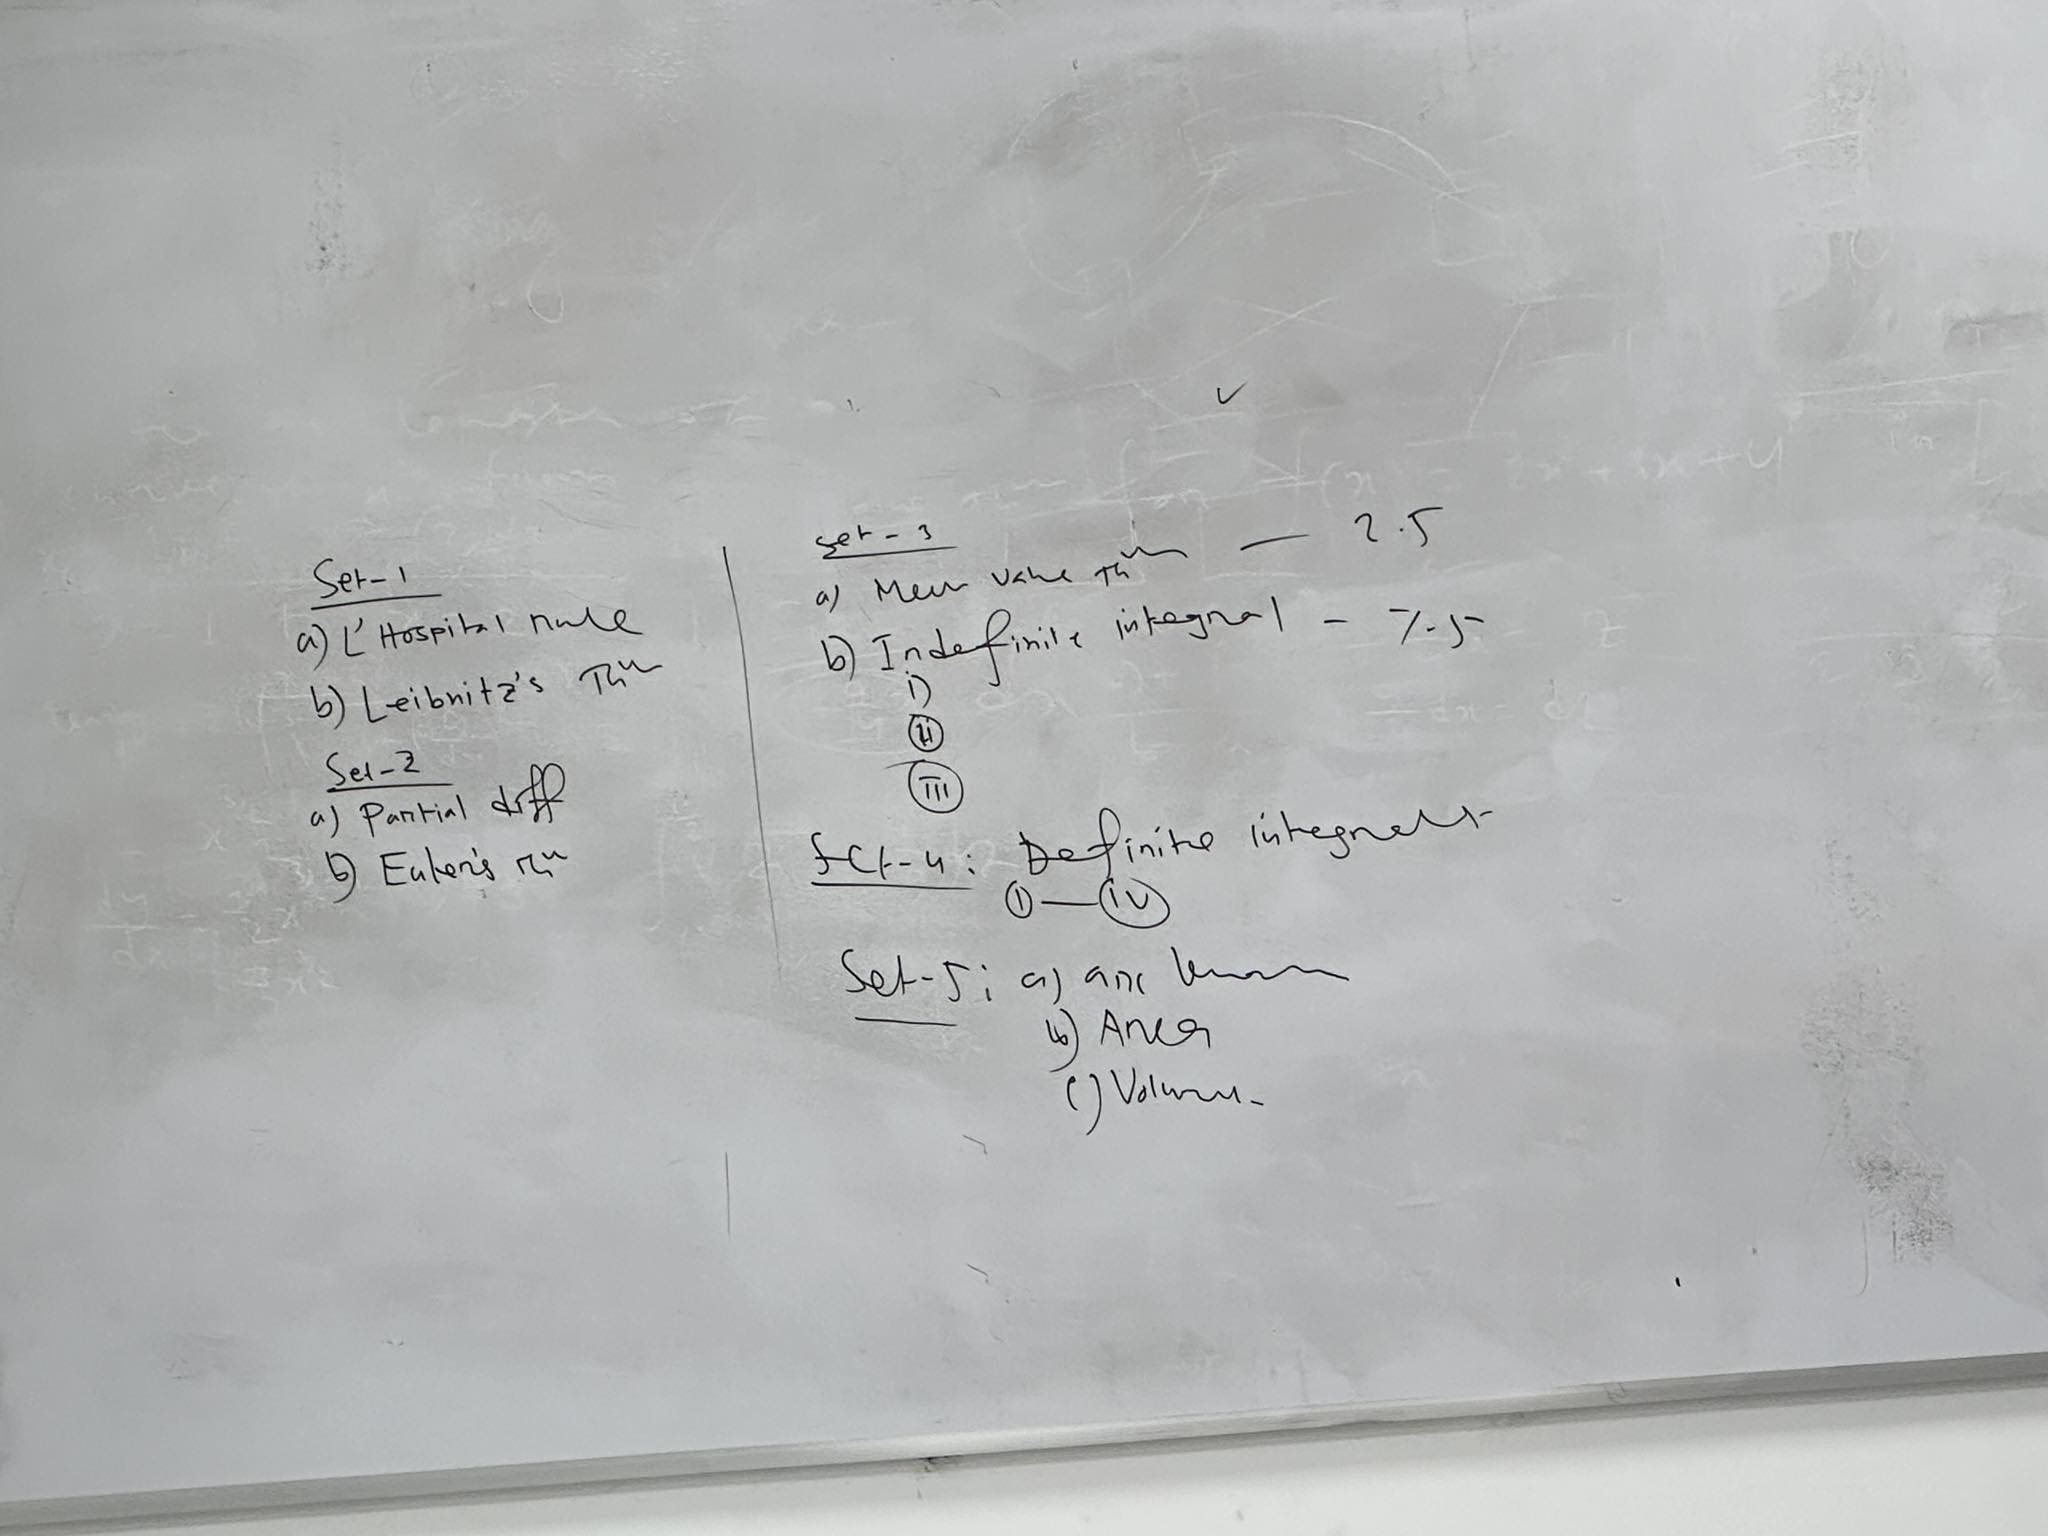 Set-1
a) L'Hospital rule
b) Leibnitz's Thm
Set-2
a) Partial diff
b) Euler's Thm
Set-3
a) Mean value Thm — 2.5
b) Indefinite integral - 7.5
i)
ii
iii
Set-4: Definite integral
i — iv
Set-5: a) arc
b) Area
c) Volume